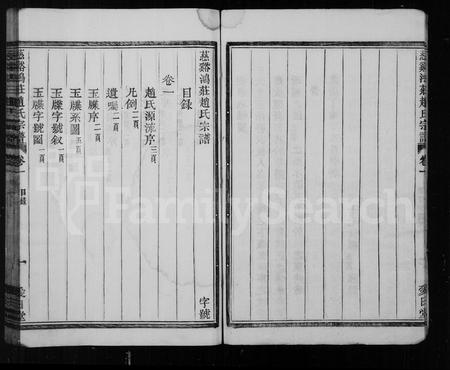 慈谿鴻莊趙氏宗譜
卷一
愛日堂
慈谿鴻莊趙氏宗譜 字號
目録
卷一
趙氏源流序 三頁
凡例 二頁
遺囑 二頁
玉牒序 二頁
玉牒系圖 五頁
玉牒字號叙 一頁
玉牒字號圖 一頁
慈谿鴻莊趙氏宗譜
卷一
目録
一
愛日堂
FamilySearch